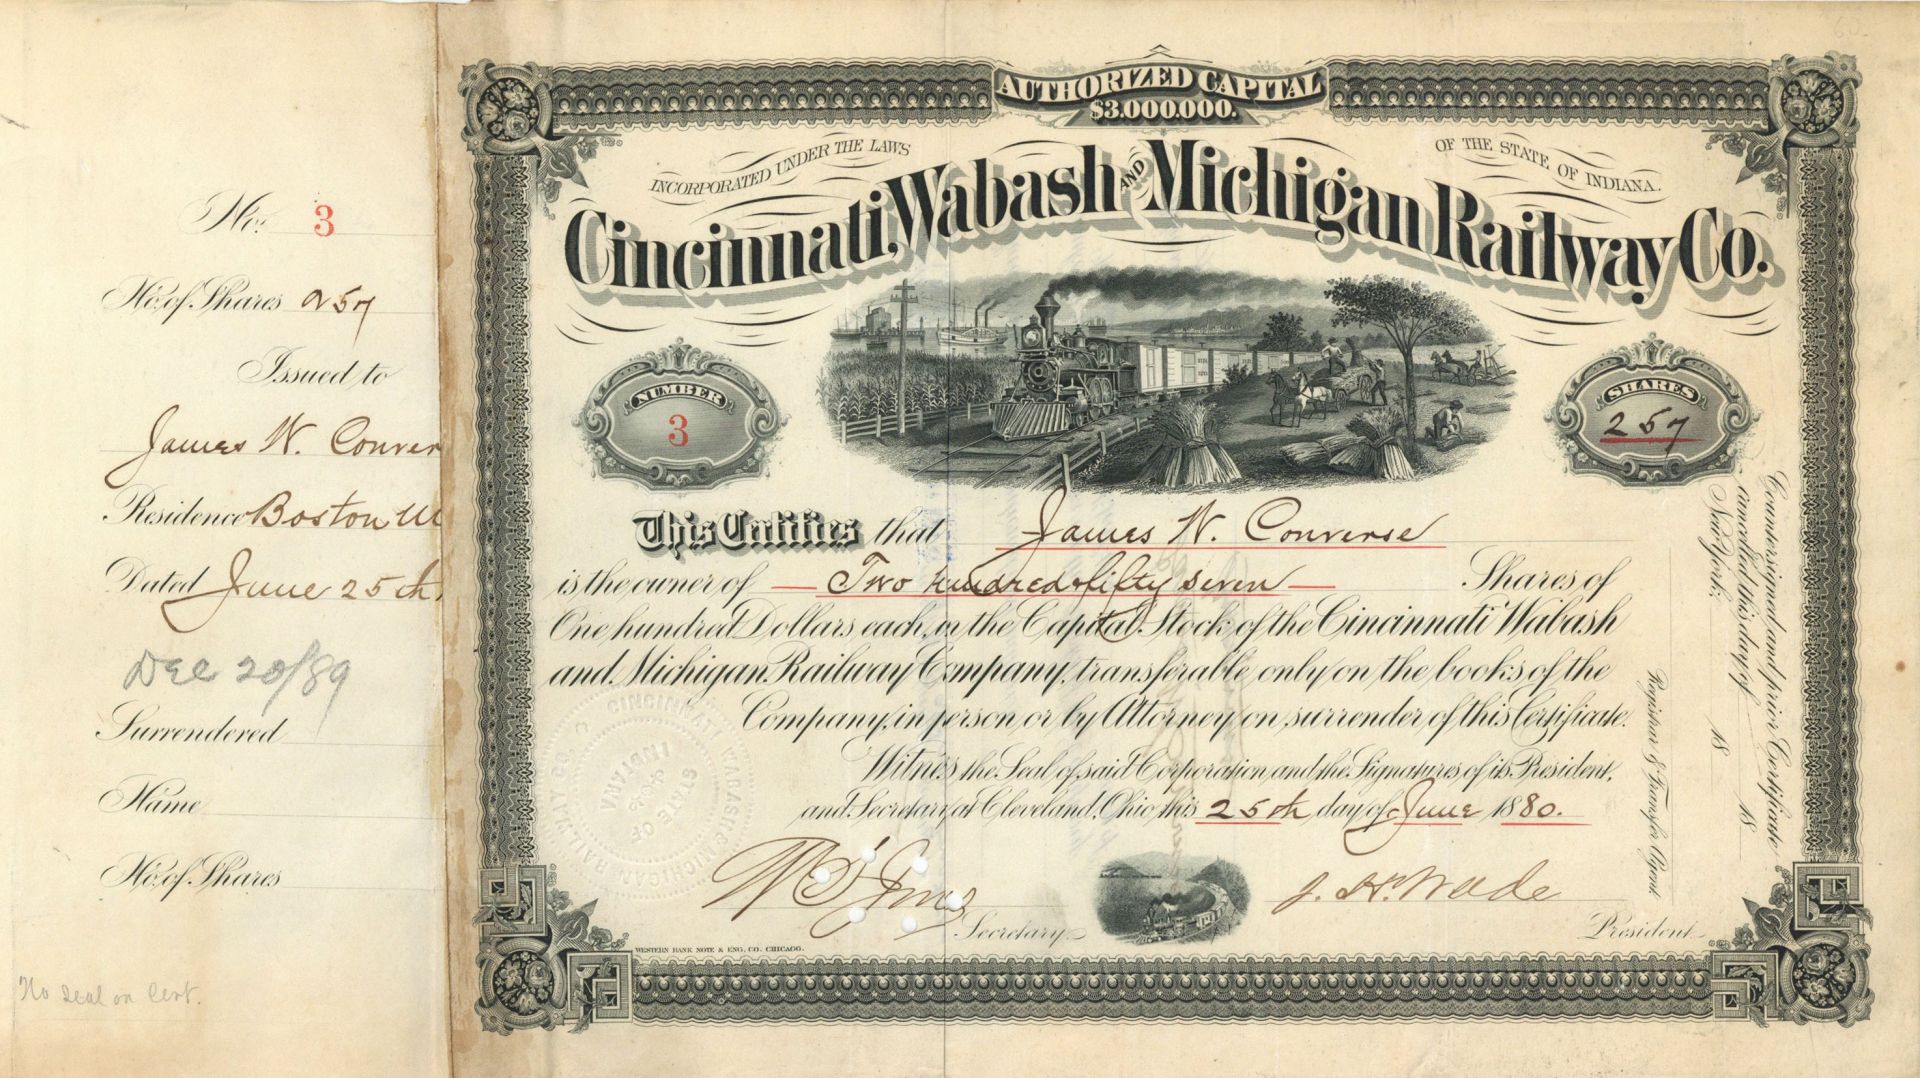 No. 3
No. of Shares 257
Issued to
James W. Conver
Residence Boston M
Dated June 25th,
Dec 20/89
Surrendered
Name
No. of Shares
No seal on Cert.
AUTHORIZED CAPITAL
$3.000.000.
INCORPORATED UNDER THE LAWS OF THE STATE OF INDIANA.
Cincinnati, Wabash AND Michigan Railway Co.
NUMBER
3
SHARES
257
This Certifies that James W. Converse
is the owner of — Two hundred & fifty seven — Shares of
One hundred Dollars each, in the Capital Stock of the Cincinnati Wabash
and Michigan Railway Company, transferable only on the books of the
Company, in person or by Attorney on surrender of this Certificate.
Witness the Seal of said Corporation and the Signatures of its President,
and Secretary at Cleveland, Ohio this 25th day of June 1880.
J. H. Wade
Secretary
President
WESTERN BANK NOTE & ENG. CO. CHICAGO.
CINCINNATI WABASH & MICHIGAN RAILWAY CO.
STATE OF INDIANA
Countersigned and prior Certificate
cancelled this day of 18
New York, 18
Registrar & Transfer Agent